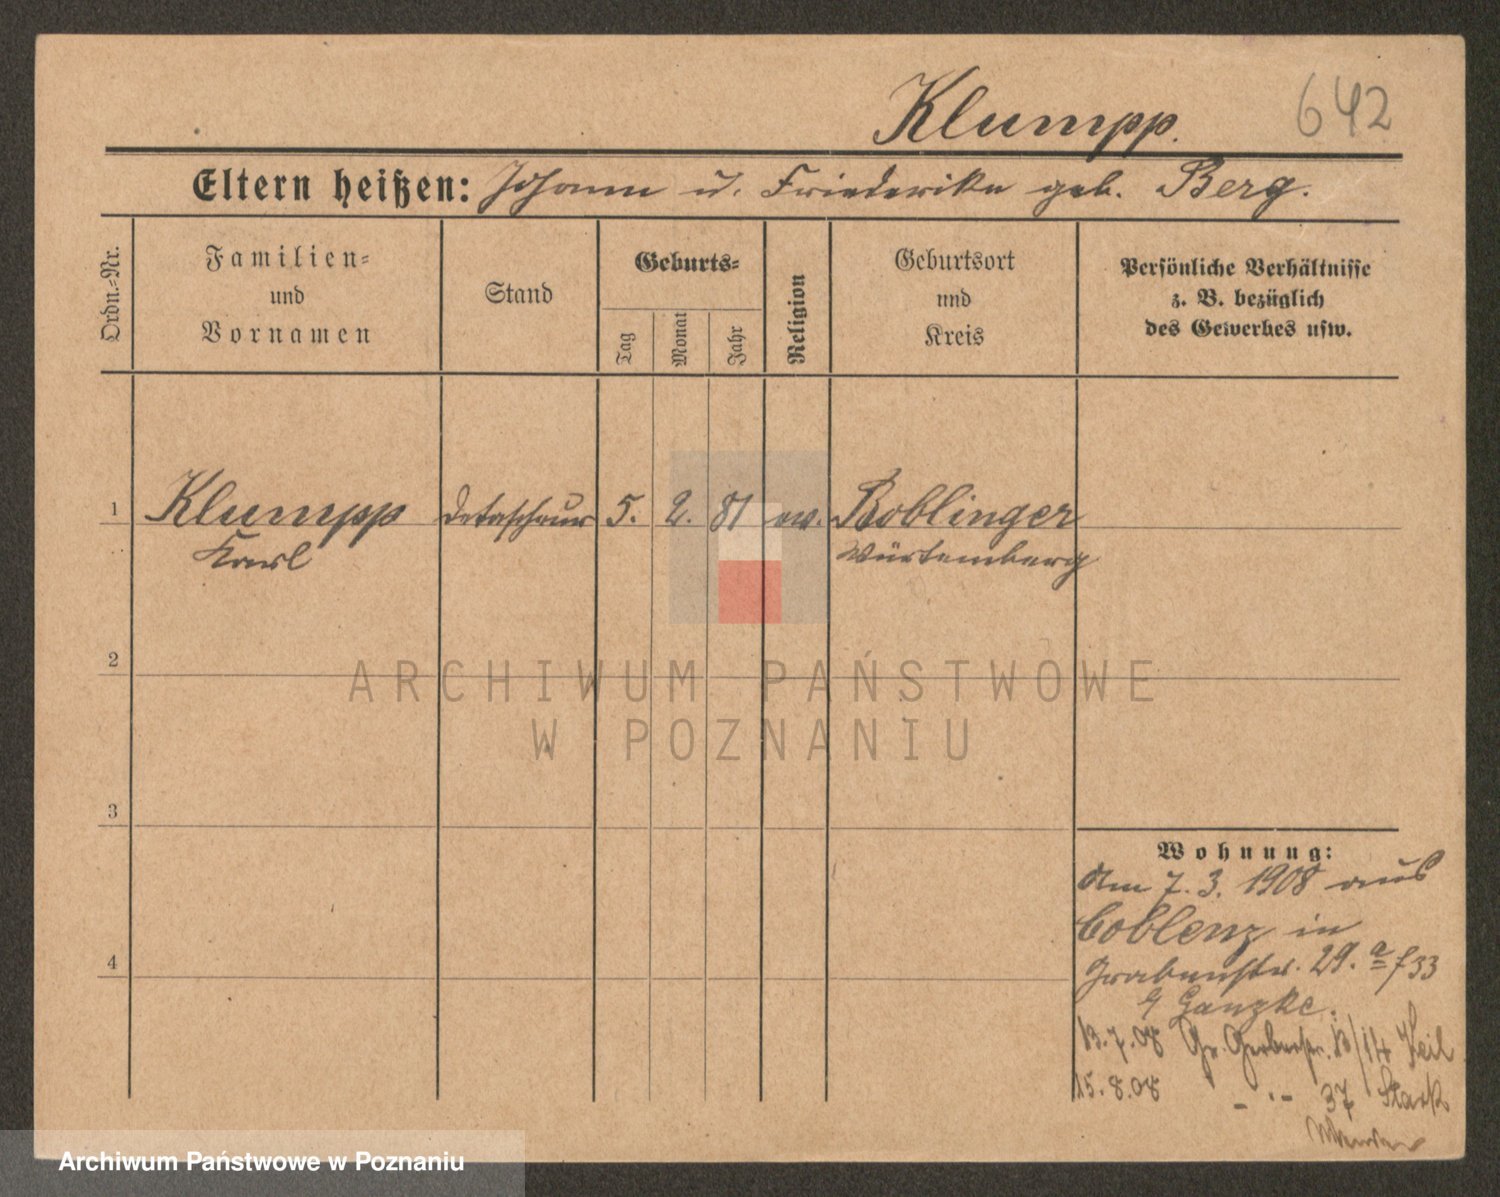 Klumpp. 642
Eltern heißen: Johann u. Friederike geb. Berg.
Ordn.-Nr.
Familien-
und
Vornamen
Stand
Geburts-
Tag
Monat
Jahr
Religion
Geburtsort
und
Kreis
Persönliche Verhältnisse
z. B. bezüglich
des Gewerbes usw.
1 Klumpp 5. 2. 81 ev. Boblinger
Karl Würtemberg
2
ARCHIWUM PAŃSTWOWE
W POZNANIU
3
Wohnung:
Am 7. 3. 1908 aus
Coblenz in
Grabenstr. 29. a f 33
Ganzke.
13.7.08 Gr. Gerberstr. 13/14 Keil
15.8.08 - " - 37 Stark
4
Archiwum Państwowe w Poznaniu